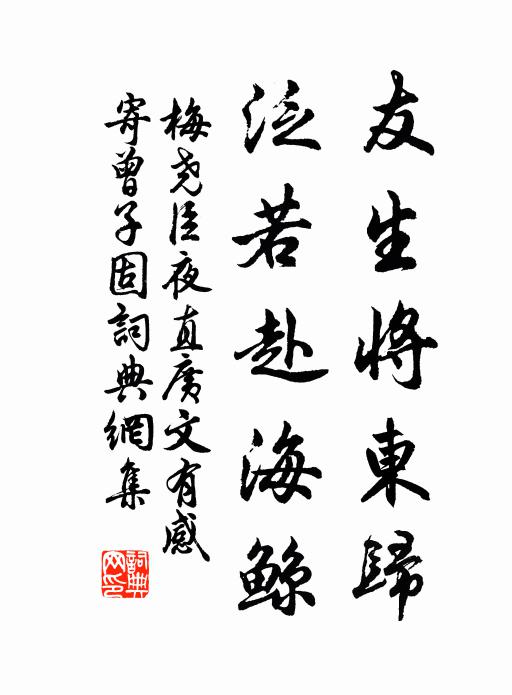 友生将東歸
泛若赴海鲸
梅尧臣夜直廣文有感
寄曾子固詞典網集
詞典网印